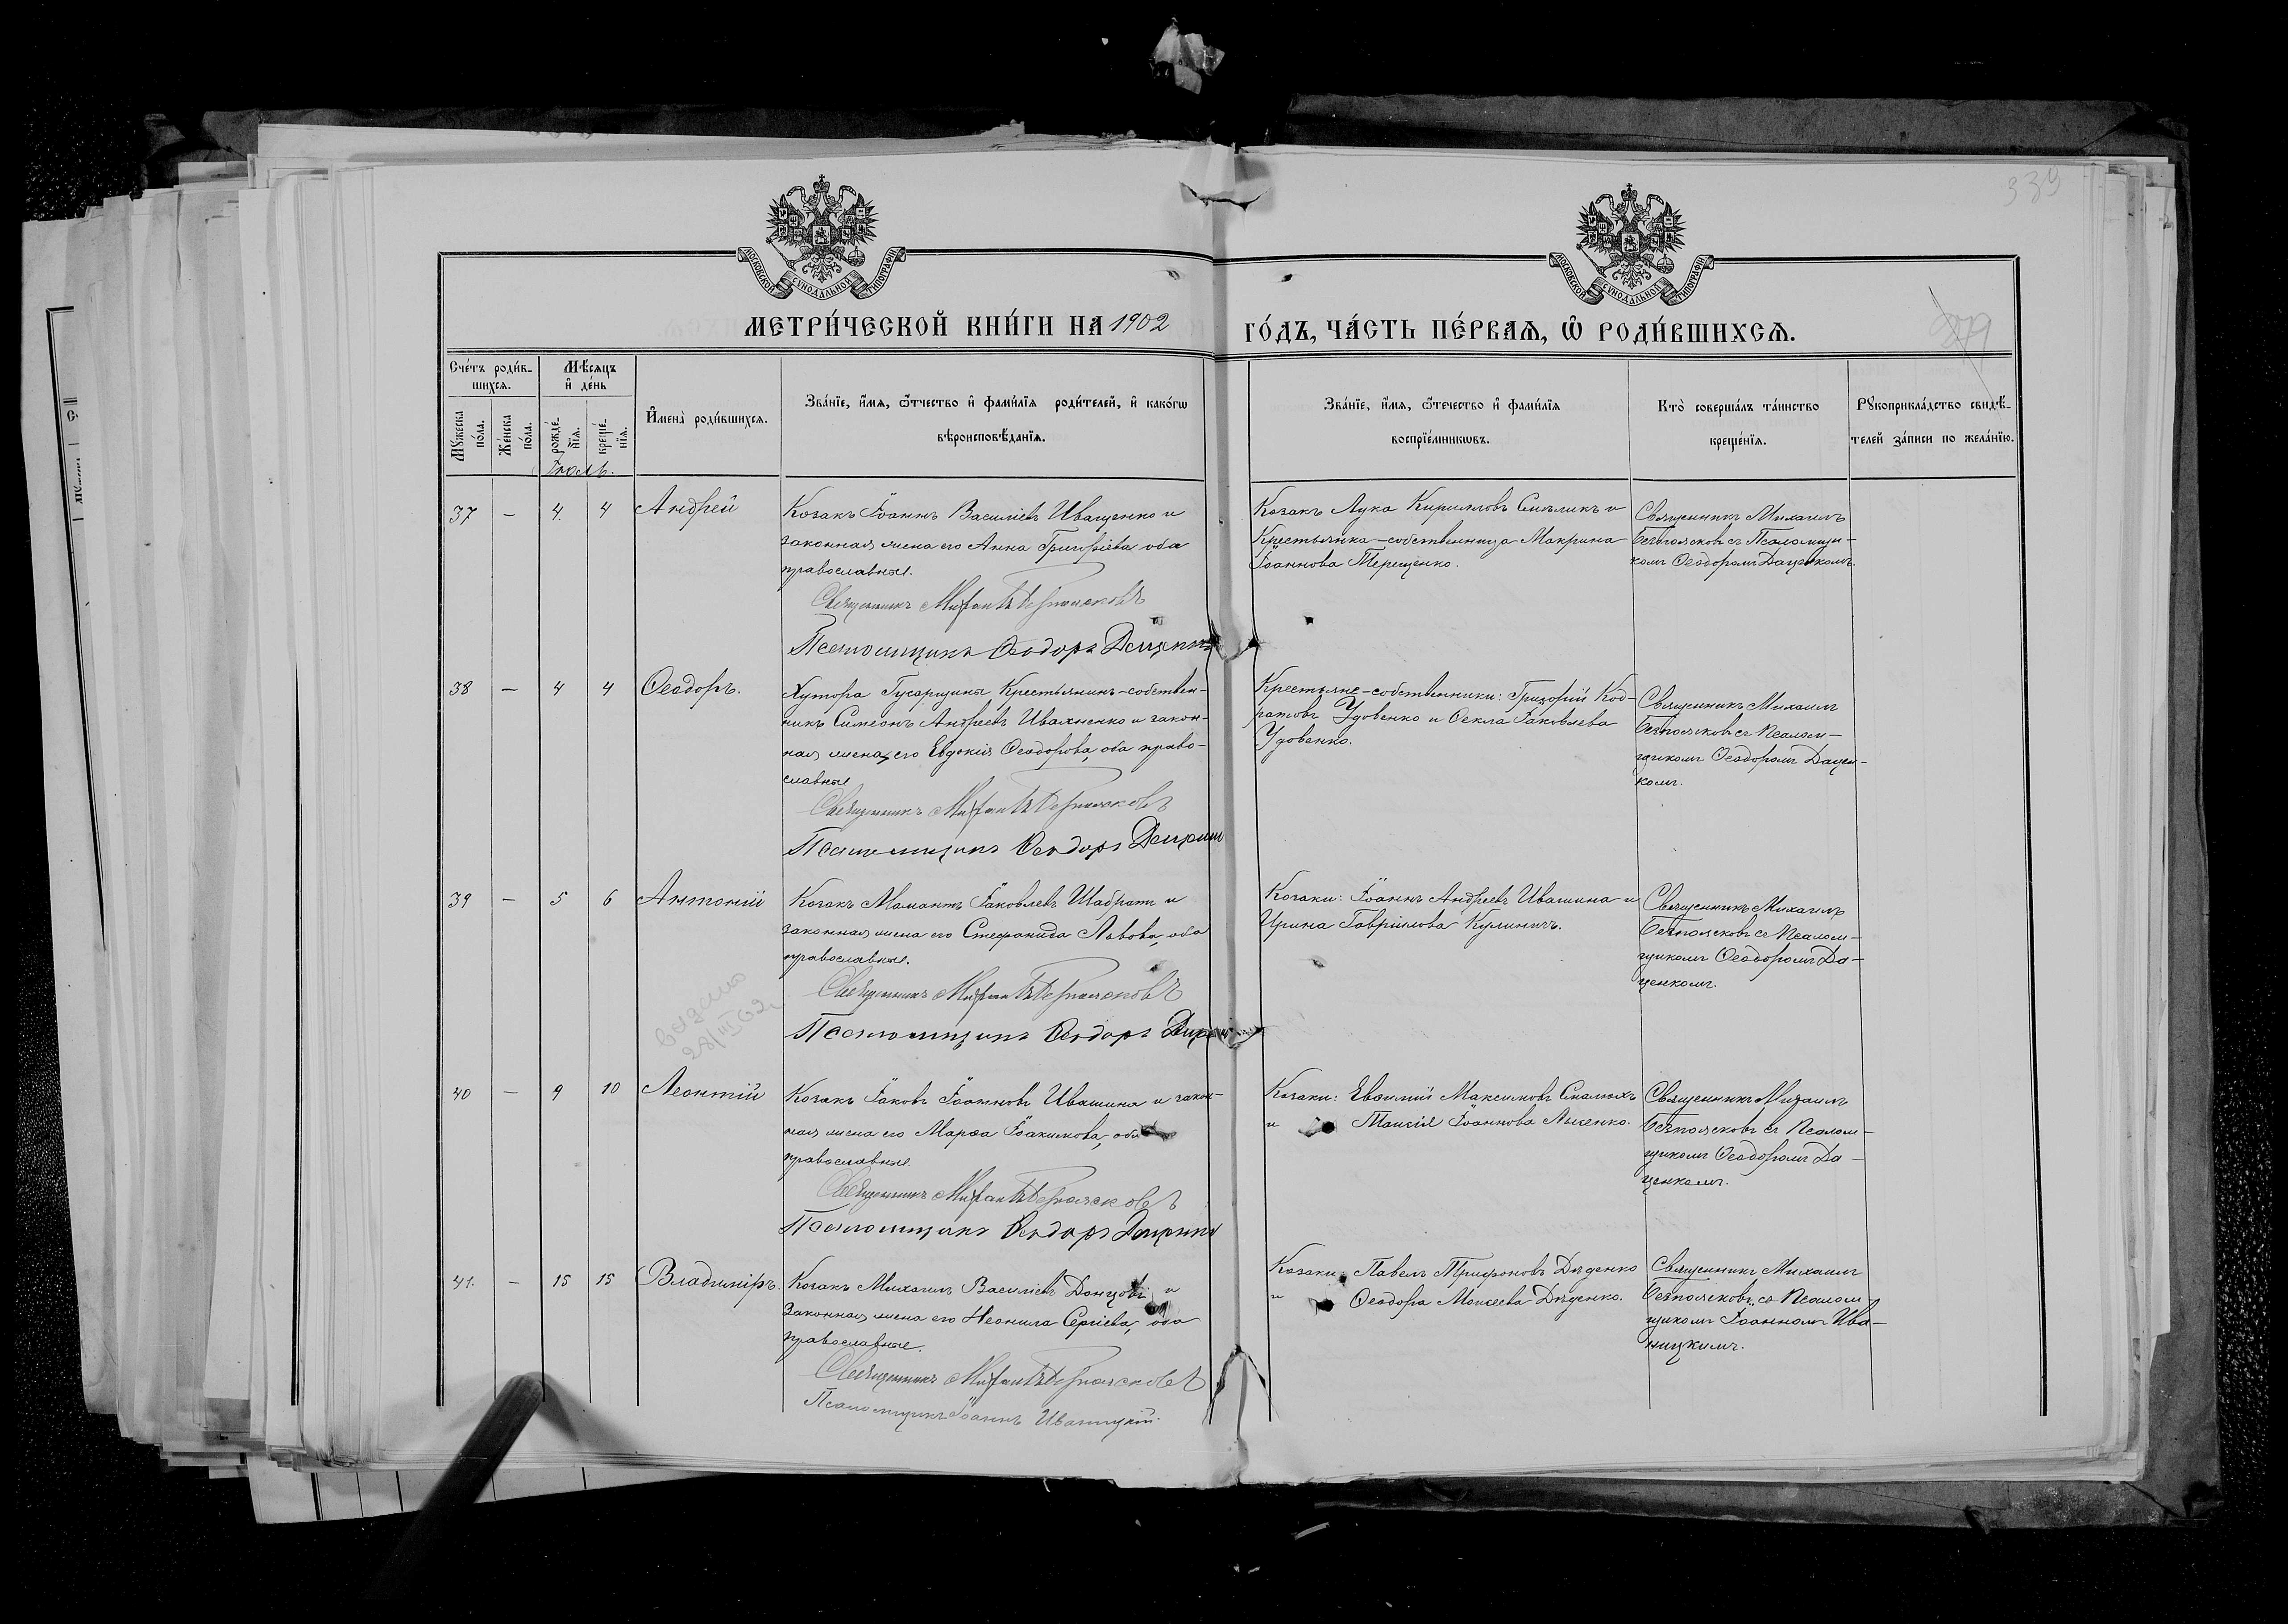 339
МОСКОВСКОЙ СѴНОДАЛЬНОЙ ТИПОГРАФІИ
МОСКОВСКОЙ СѴНОДАЛЬНОЙ ТИПОГРАФІИ
МЕТРИ́ЧЕСКОЙ КНИ́ГИ НА 1902
ГО́ДЪ, ЧА́СТЬ ПЕ́РВАѦ, Ѡ РОДИ́ВШИХСѦ.
Сче́тъ роди́в-
шихсѧ.
Мꙋжеска
по́ла.
Же́нска
по́ла.
Мѣ́сѧцъ
и҆ де́нь
рожде́-
нїѧ.
креще́-
нїѧ.
Іюль.
И҆мена̀ роди́вшихсѧ.
Зва́нїе, и҆́мѧ, ѻ҆́тчество и҆ фами́лїѧ роди́телей, и҆ како́гѡ
вѣроисповѣ́данїѧ.
Зва́нїе, и҆́мѧ, ѻ҆́течество и҆ фами́лїѧ
воспрїе́мникѡвъ.
Кто̀ соверша́лъ та́инство
креще́нїѧ.
Рꙋкоприкла́дство свидѣ́-
телей за́писи по жела́нїю.
37 — 4. 4 Андрей
Козакъ Іоаннъ Василіевъ Иващенко и
законная жена его Анна Григоріева оба
православные.
Священникъ Михаилъ Безпоясковъ
Псаломщикъ Ѳеодоръ Даценко
Козакъ Лука Кирилловъ и
Крестьянка-собственница Макрина
Іоаннова Терещенко.
Священникъ Михаилъ
Безпоясковъ съ Псаломщи-
комъ Ѳеодоромъ Даценкомъ.
38 — 4 4 Ѳеодоръ.
Хутора Гусарщины Крестьянинъ-собствен-
никъ Симеонъ Андреевъ Ивахненко и закон-
ная жена его Евдокія Ѳеодорова, оба право-
славные
Священникъ Михаилъ Безпоясковъ
Псаломщикъ Ѳеодоръ Даценко
Крестьяне-собственники: Григорій Код-
ратовъ Удовенко и Ѳекла Іаковлева
Удовенко.
Священникъ Михаилъ
Безпоясковъ съ Псалом-
щикомъ Ѳеодоромъ Дацен-
комъ.
39 — 5 6 Антоній
Козакъ Мамантъ Іаковлевъ Шабратъ и
законная жена его Стефанида Львова, оба
православные.
Священникъ Михаилъ Безпоясковъ
Псаломщикъ Ѳеодоръ Даценко
Козаки: Іоаннъ Андреевъ Ивашина и
Ирина Гавріилова Кулиничъ.
Священникъ Михаилъ
Безпоясковъ съ Псалом-
щикомъ Ѳеодоромъ Да-
ценкомъ.
40 — 9 10 Леонтій
Козакъ Іаковъ Іоанновъ Ивашина и закон-
ная жена его Марѳа Іоакимова, оба
православные.
Священникъ Михаилъ Безпоясковъ
Псаломщикъ Ѳеодоръ Даценко
Козаки: Евѳимій Максимовъ
и Таисія Іоаннова Лысенко.
Священникъ Михаилъ
Безпоясковъ съ Псалом-
щикомъ Ѳеодоромъ Да-
ценкомъ.
41. — 15 15 Владиміръ.
Козакъ Михаилъ Василіевъ Донцовъ и
законная жена его Неонила Сергіева, оба
православные.
Священникъ Михаилъ Безпоясковъ
Псаломщикъ Іоаннъ Иваницкій.
Козаки: Павелъ Трифоновъ Дяденко
и Ѳеодора Моисеева Дяденко.
Священникъ Михаилъ
Безпоясковъ съ Псалом-
щикомъ Іоанномъ Ива-
ницкимъ.